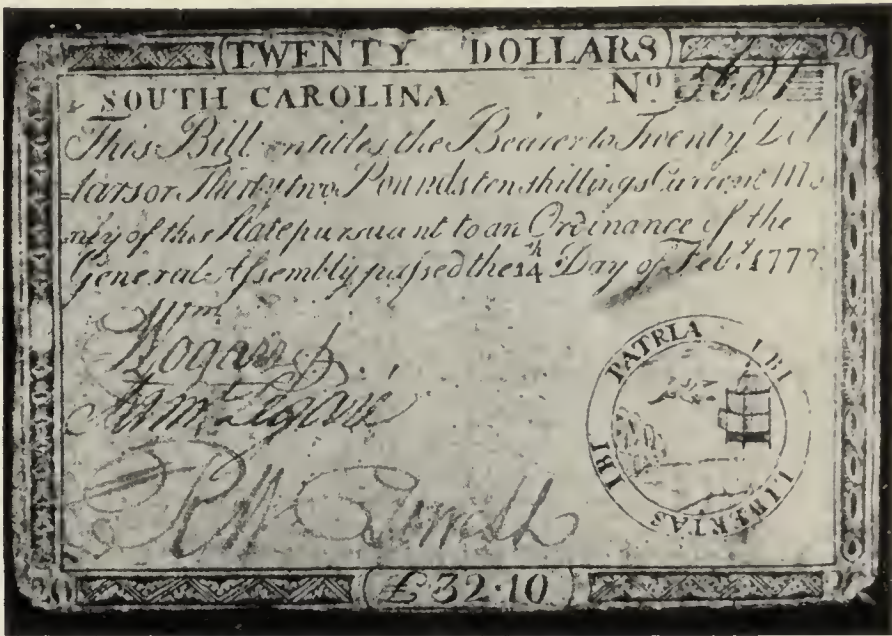 20 TWENTY DOLLARS 20
SOUTH CAROLINA No
This Bill entitles the Bearer to Twenty Dol
lars or Thirty two Pounds ten shillings Current Mo
ney of this State pursuant to an Ordinance of the
General Assembly passed the 14th Day of Feby. 1777
Wm
Logan
Legaré
UBI LIBERTAS IBI PATRIA
20 £32.10 20